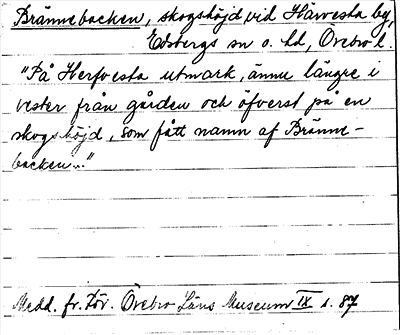 Brännebacken, skogshöjd vid Härvesta by,
Edsbergs sn o. hd, Örebro l.
"På Herfvesta utmark, ännu längre i
vester från gården och öfverst på en
skogshöjd, som fått namn af Bränne-
backen..."
Medd. fr. För. Örebro Läns Museum IX s. 87